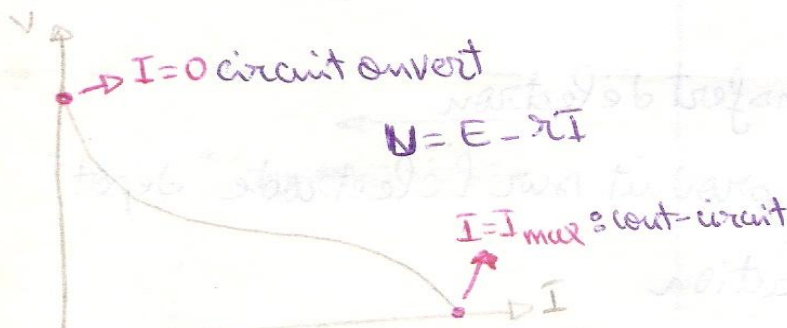 V
I=0 circuit ouvert
U = E - rI
I=Imax : cout-circuit
I